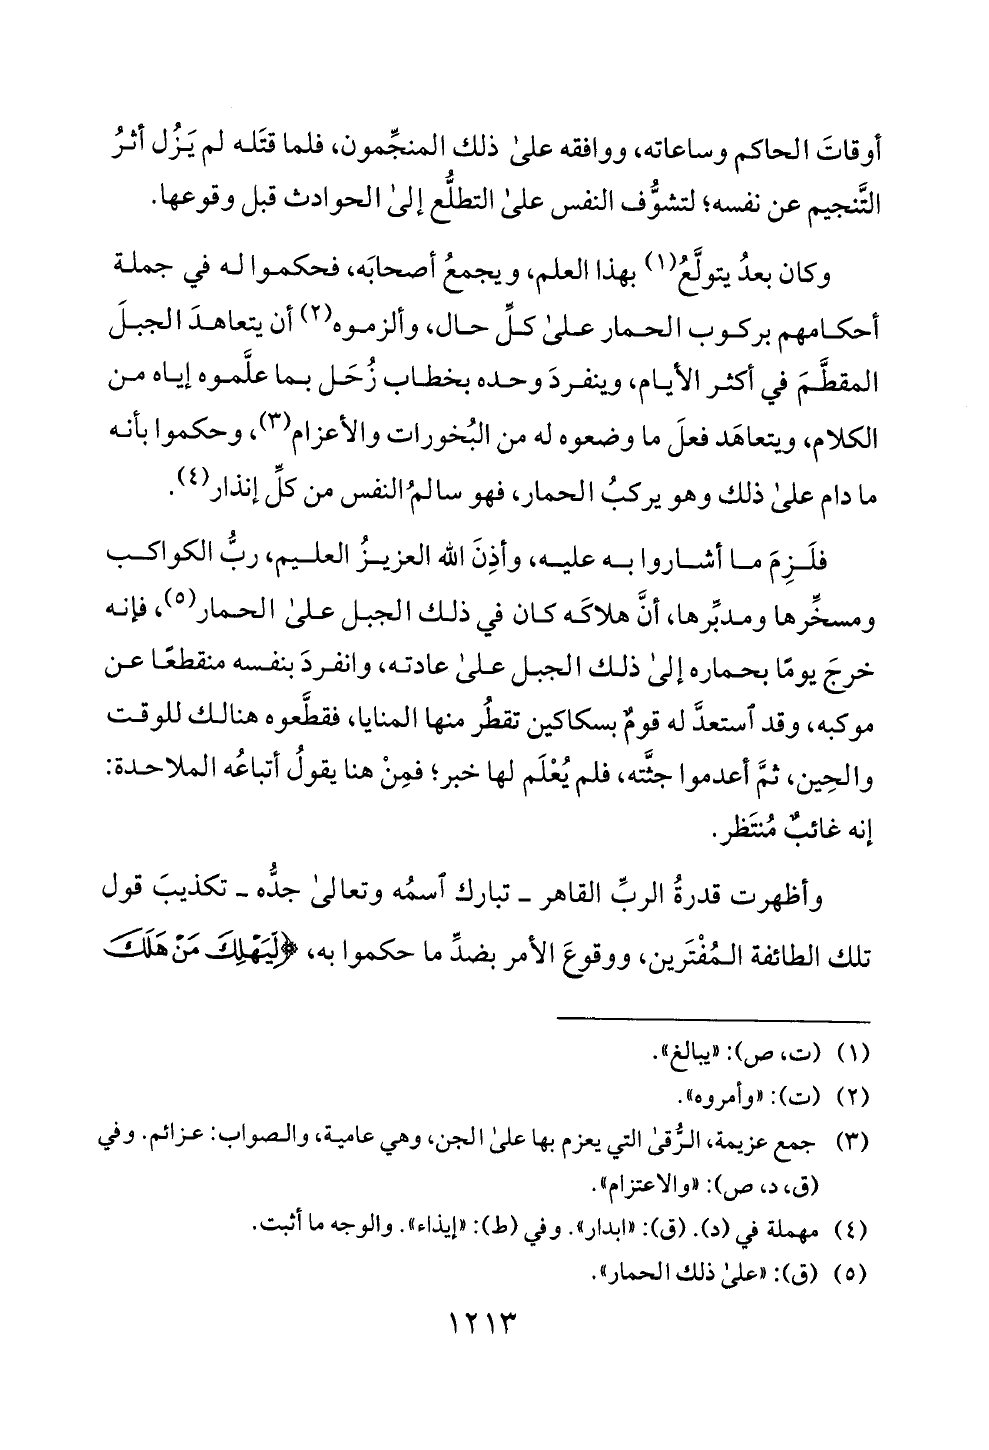 أوقاتَ الحاكم وساعاته، ووافقه علىٰ ذلك المنجِّمون، فلما قتَله لم يَزُل أثرُ
التَّنجيم عن نفسه؛ لتشوُّف النفس علىٰ التطلُّع إلىٰ الحوادث قبل وقوعها.
وكان بعدُ يتولَّعُ(١) بهذا العلم، ويجمعُ أصحابَه، فحكموا له في جملة
أحكامهم بركوب الحمار علىٰ كلِّ حال، وألزموه(٢) أن يتعاهدَ الجبلَ
المقطَّمَ في أكثر الأيام، وينفردَ وحده بخطاب زُحَل بما علَّموه إياه من
الكلام، ويتعاهَد فعلَ ما وضعوه له من البُخورات والأعزام(٣)، وحكموا بأنه
ما دام علىٰ ذلك وهو يركبُ الحمار، فهو سالمُ النفس من كلِّ إنذار(٤).
فلَزِمَ ما أشاروا به عليه، وأذِنَ الله العزيزُ العليم، ربُّ الكواكب
ومسخِّرها ومدبِّرها، أنَّ هلاكَه كان في ذلك الجبل علىٰ الحمار(٥)، فإنه
خرجَ يومًا بحماره إلىٰ ذلك الجبل علىٰ عادته، وانفردَ بنفسه منقطعًا عن
موكبه، وقد ٱستعدَّ له قومٌ بسكاكين تقطُر منها المنايا، فقطَّعوه هنالك للوقت
والحِين، ثمَّ أعدموا جثَّته، فلم يُعْلَم لها خبر؛ فمِنْ هنا يقولُ أتباعُه الملاحدة:
إنه غائبٌ مُنتَظر.
وأظهرت قدرةُ الربِّ القاهر ـ تبارك ٱسمُه وتعالىٰ جدُّه ـ تكذيبَ قول
تلك الطائفة المُفْتَرين، ووقوعَ الأمر بضدِّ ما حكموا به، ﴿لِيَهْلِكَ مَنْ هَلَكَ
(١) (ت، ص): «يبالغ».
(٢) (ت): «وأمروه».
(٣) جمع عزيمة، الرُّقىٰ التي يعزم بها علىٰ الجن، وهي عامية، والصواب: عزائم. وفي
(ق، د، ص): «والاعتزام».
(٤) مهملة في (د). (ق): «ابدار». وفي (ط): «إيذاء». والوجه ما أثبت.
(٥) (ق): «علىٰ ذلك الحمار».
١٢١٣